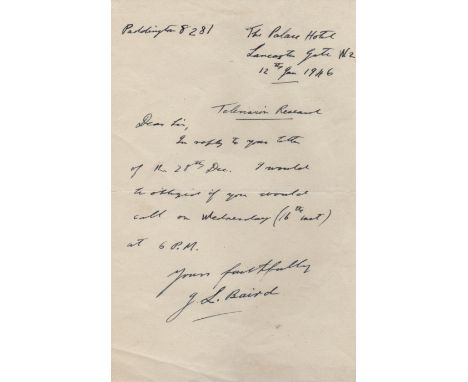 Paddington 8281
The Palace Hotel
Lancaster Gate W.2
12th Jan 1946
Television Research
Dear Sir,
In reply to your letter
of the 28th Dec. I would
be obliged if you would
call on Wednesday (16th inst)
at 6 P.M.
Yours faithfully
J. L. Baird